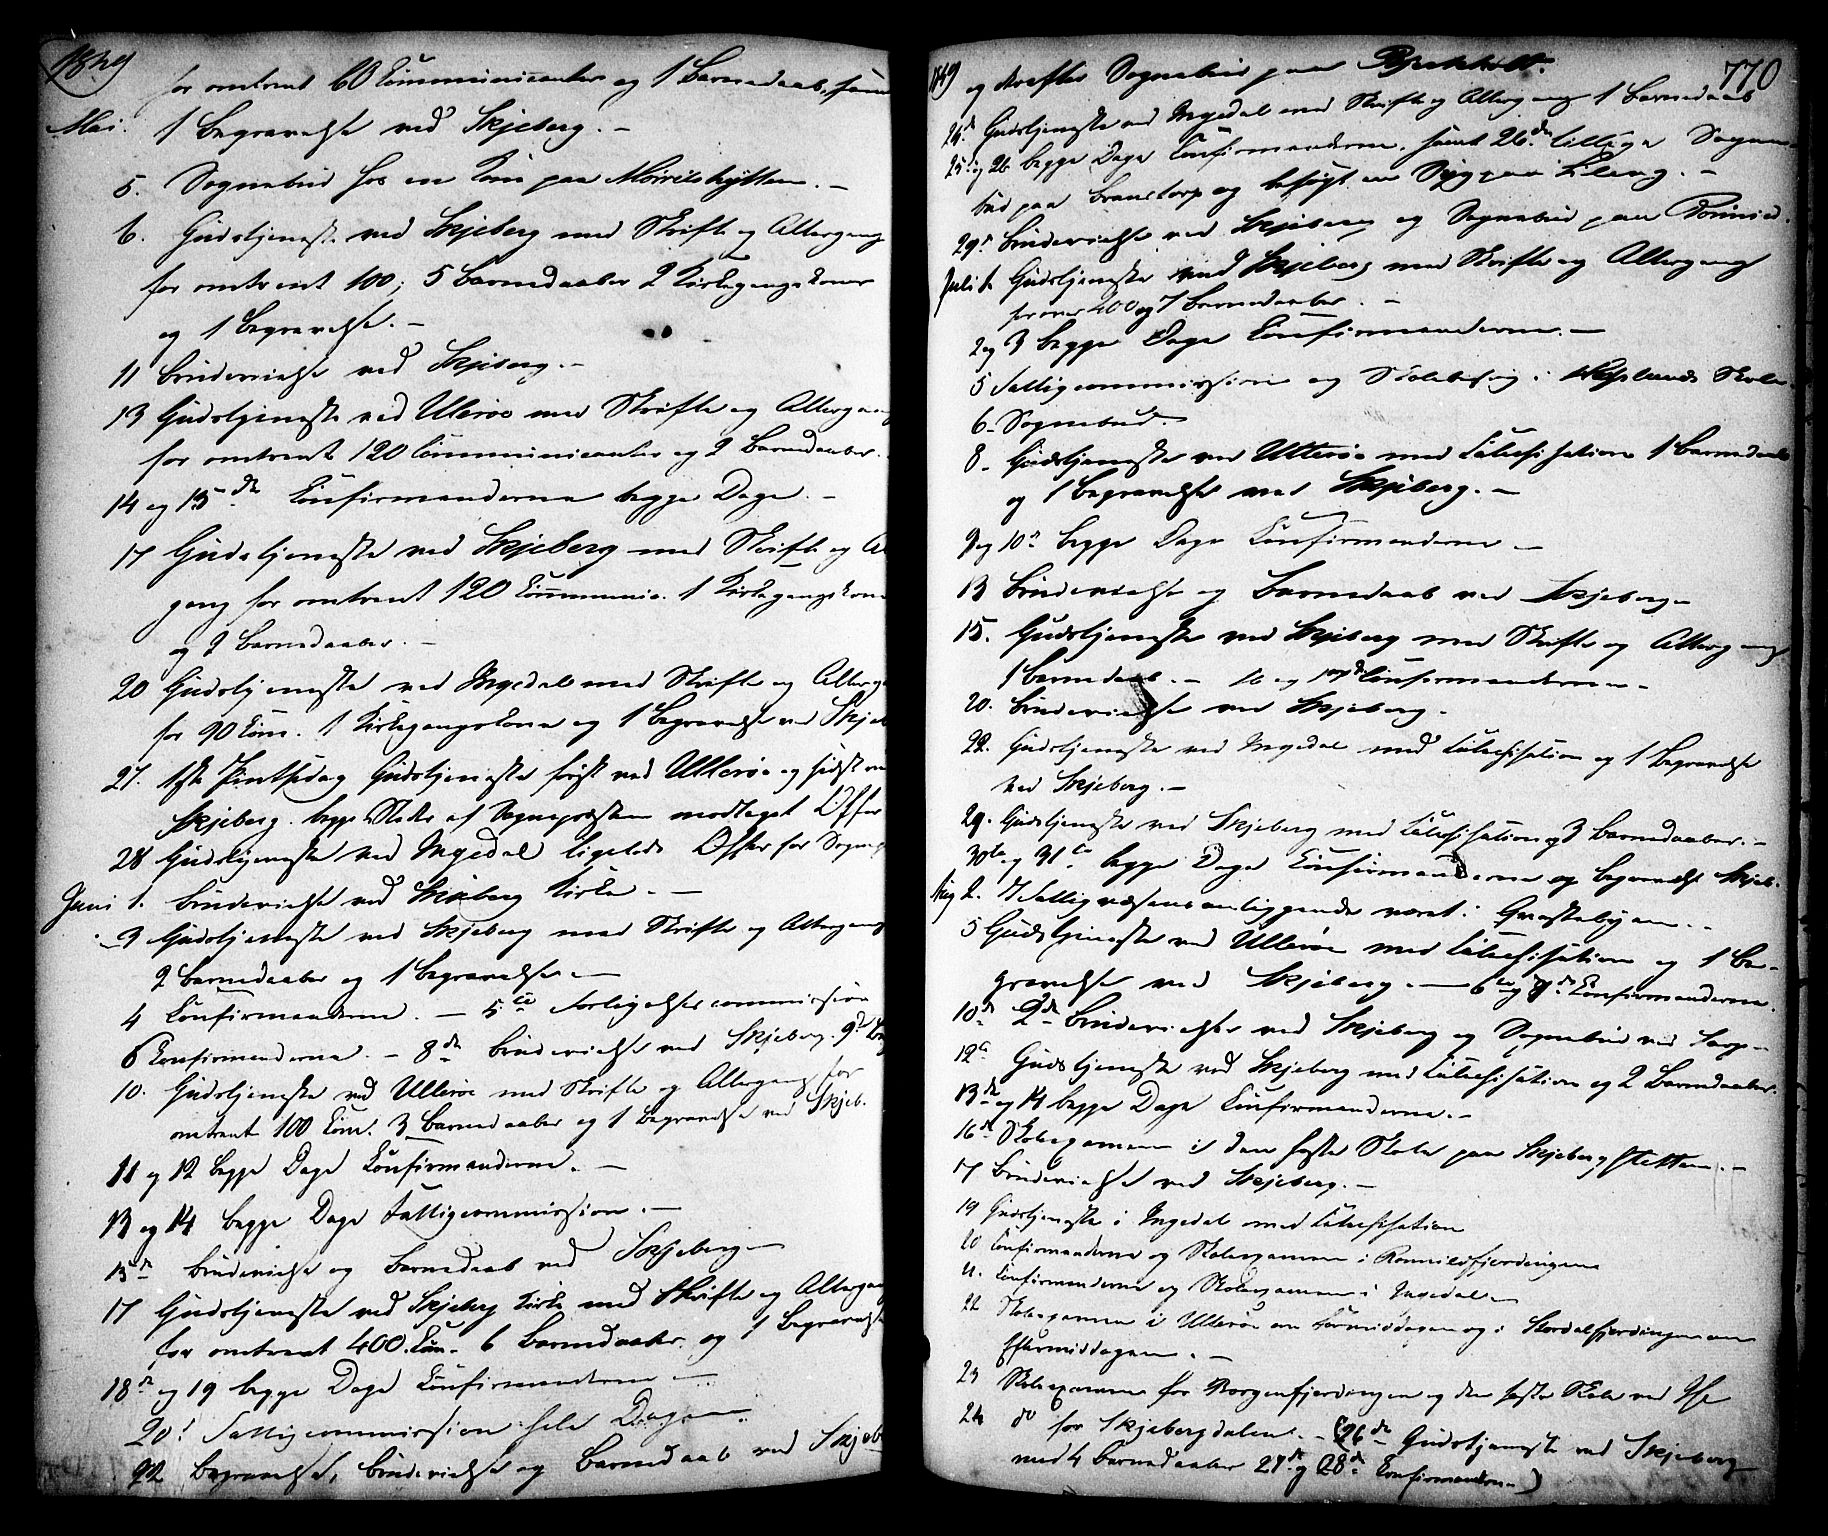 1849
for omtrent 60 Communicanter og 1 Barnedaab, samt
Mai. 1 Begravelse ved Skjeberg. –
5. Sognebud hos en Kone paa
6. Gudstjeneste ved Skjeberg med Skrifte og Altergang
for omtrent 100, 5 Barnedaaber 2 Kirkegangskoner
og 1 Begravelse. –
11 Brudevielse ved Skjeberg. –
13 Gudstjeneste ved Ullerøe med Skrifte og Altergang
for omtrent 120 Communicanter og 2 Barnedaaber.
14 og 15de Confirmanderne begge Dage. –
17 Gudstjeneste ved Skjeberg med Skrifte og Al
gang for omtrent 120 Communic. 1 Kirkegangskone
og 2 Barnedaaber. –
20 Gudstjeneste ved Ingedal med Skrifte og Alterg
for 90 Com. 1 Kirkegangskone og 1 Begravelse ved Skjeb
27. 1ste Pintsedag Gudstjeneste først ved Ullerøe og sidst ved
Skjeberg. begge Steder af Sognepræsten modtaget Offer
28 Gudstjeneste ved Ingedal ligeledes Offer for Sognep
Juni 1. Brudevielse ved Skjeberg Kirke. –
3 Gudstjeneste ved Skjeberg med Skrifte og Altergang
2 Barnedaaber og 1 Begravelse. –
4 Confirmanderne. – 5te Forligelsescommission
6 Confirmanderne. – 8de Brudevielse ved Skjeberg. 9de
10. Gudstjeneste ved Ullerøe med Skrifte og Altergang for
omtrent 100 Com. 3 Barnedaaber og 1 Begravelse ved Skjeb.
11 og 12 begge Dage Confirmanderne. –
13 og 14 begge Dage Fattigcommission. –
15de Brudevielse og Barnedaab ved Skjeberg –
17 Gudstjeneste ved Skjeberg Kirke med Skrifte og Altergang
for omtrent 400 Com. 6 Barnedaaber og 1 Begravelse
18de og 19 begge Dage Confirmanderne –
20. Fattigcommission hele Dagen.
22 Begravelse, Brudevielse og Barnedaab ved Skjeb
1849 770
og derefter Sognebud paa
24de Gudstjeneste ved Ingedal med Skrifte og Altergang 1 Barnedaab
25 og 26 begge Dage Confirmanderne, samt 26de tillige Sogne-
bud paa og besøgt en Syg paa
29de Brudevielse ved Skjeberg og Sognebud paa
Juli 1. Gudstjeneste ved Skjeberg med Skrifte og Altergang
for over 400 og 7 Barnedaaber. –
2 og 3 begge Dage Confirmanderne. –
5 Fattigcommission og Skolebesøg i Skole
6. Sognebud.
8. Gudstjeneste ved Ullerøe med Catechisation 1 Barnedaab
og 1 Begravelse ved Skjeberg. –
9 og 10de begge Dage Confirmanderne –
13 Brudevielse og Barnedaab ved Skjeberg –
15. Gudstjeneste ved Skjeberg med Skrifte og Altergang
1 Barnedaab. – 16 og 17de Confirmanderne –
20. Brudevielse ved Skjeberg.
22. Gudstjeneste ved Ingedal med Catechisation og 1 Begravelse
ved Skjeberg. –
29. Gudstjeneste ved Skjeberg med Catechisation og 3 Barnedaaber. –
30te og 31te begge Dage Confirmanderne og Begravelse Skjeb.
Aug 2. I Fattigvæsensanliggende været i
5 Gudstjeneste ved Ullerøe med Catechisation og 1 Be-
gravelse ved Skjeberg. – 6te og 7de Confirmanderne.
10de 2de Brudevielser ved Skjeberg og Sognebud ved Sarp –
12te Gudstjeneste ved Skjeberg med Catechisation og 2 Barnedaaber.
13de og 14 begge Dage Confirmanderne. –
16de Skoleexamen i den faste Skole paa Skjebergsletten. –
17 Brudevielse ved Skjeberg. –
19 Gudstjeneste i Ingedal med Catechisation
20 Confirmanderne og Skoleexamen i
21. Confirmanderne og Skoleexamen i Ingedal –
22 Skoleexamen i Ullerøe om Formiddagen og i Stordalfjerdingen om
Eftermiddagen. –
23 Skoleexamen for Borgenfjerdingen og den faste Skole ved Ise
24 do for Skjebergdalen. – (26de Gudstjeneste ved Skjeberg
med 4 Barnedaaber 27de og 28de Confirmanderne –)